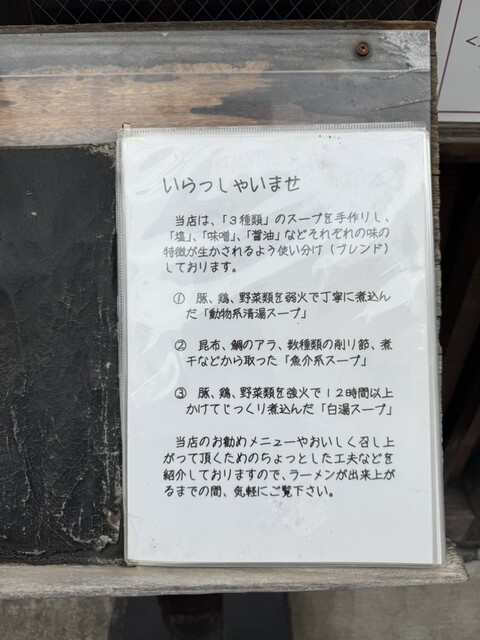 いらっしゃいませ
当店は、「3種類」のスープを手作りし、
「塩」、「味噌」、「醤油」などそれぞれの味の
特徴が生かされるよう使い分け(ブレンド)
しております。
① 豚、鶏、野菜類を弱火で丁寧に煮込ん
だ「動物系清湯スープ」
② 昆布、鯛のアラ、数種類の削り節、煮
干などから取った「魚介系スープ」
③ 豚、鶏、野菜類を強火で12時間以上
かけてじっくり煮込んだ「白湯スープ」
当店のお勧めメニューやおいしく召し上
がって頂くためのちょっとした工夫などを
紹介しておりますので、ラーメンが出来上が
るまでの間、気軽にご覧下さい。